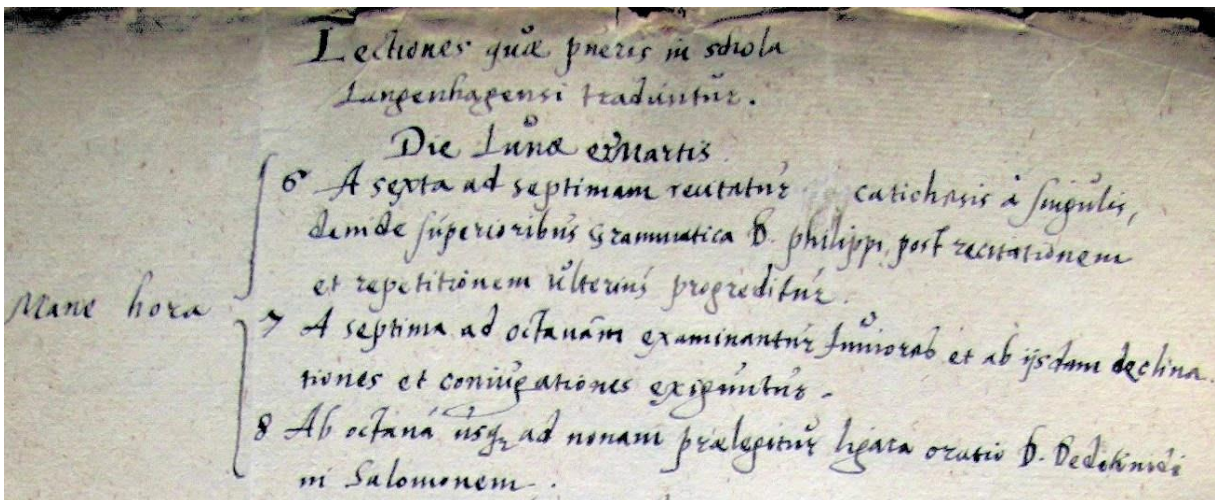 Lectiones quæ pueris in schola
Langenhagensi traduntur.
Die Lunæ et Martis
6 A sexta ad septimam recitatur catichesis à singulis,
deinde superioribus Grammatica D. Philippi, post recitationem
et repetitionem ulterius progreditur.
Mane hora
7 A septima ad octavam examinantur Iuniores et ab ijsdem declina
tiones et coniugationes exiguntur.
8 Ab octava usq ad nonam prælegitur ligata oratio D.
in Salomonem.